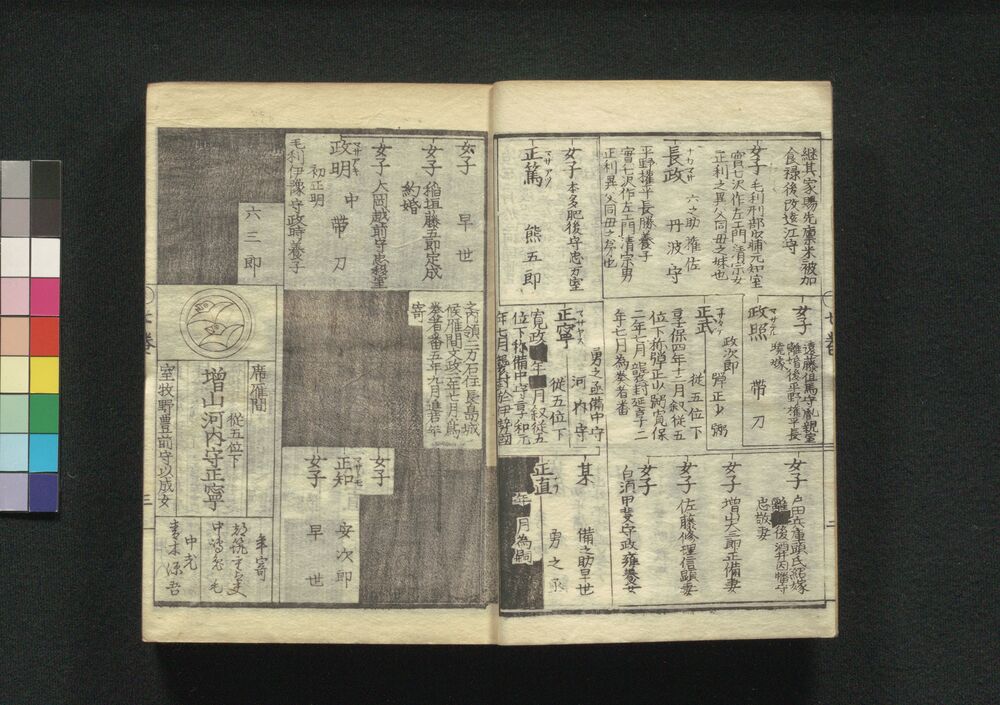 継其家賜先廪米被加
食禄後改遠江守
女子 毛利刑部少輔元知室
實七沢作左エ門清宗女
正利之異父同母之妹也
ナカマサ
長政 六之助 権佐
丹波守
平野権平長勝養子
實七沢作左エ門清宗男
正利異父同母之弟也
女子 本多肥後守忠方室
マサアツ
正篤 熊五郎
女子 遠藤但馬守胤親室
離婚後平野権平長
境嫁
政照 帯刀
正武 政次郎
弾正少弼
従五位下
享保四年十二月叙従五
位下称弾正少弼寛保
二年七月襲封延享二
年七月為奏者番
マサヤス
正寧 勇之丞 備中守
河内守
従五位下
寛政 年 月叙従五
位下称備中守享和元
年七月襲封於伊勢国
女子 戸田兵庫頭氏結嫁
離 後酒井因幡守
忠敬妻
女子 増山三郎正備妻
女子 佐藤修理信顕妻
女子 白須甲斐守政雍養女
某 備之助早世
正直 勇之丞
年 月為嗣
女子 早世
女子 稲垣藤五郎定成
約婚
女子 大岡越前守忠毅室
マサアキ
政明 中 帯刀
初正明
毛利伊豫守政時養子
六三郎
内領二万石住長島城
候雁間文政五年七月為
奏者番五年九月進若年
寄
女子
マサトモ
正知 安次郎
女子 早世
席雁間
従五位下
増山河内守正寧
室牧野豊前守以成女
年寄
中老
青木源吾